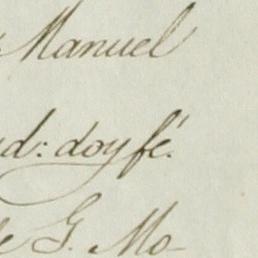 Manuel
d: doy fé.
G. Mo-